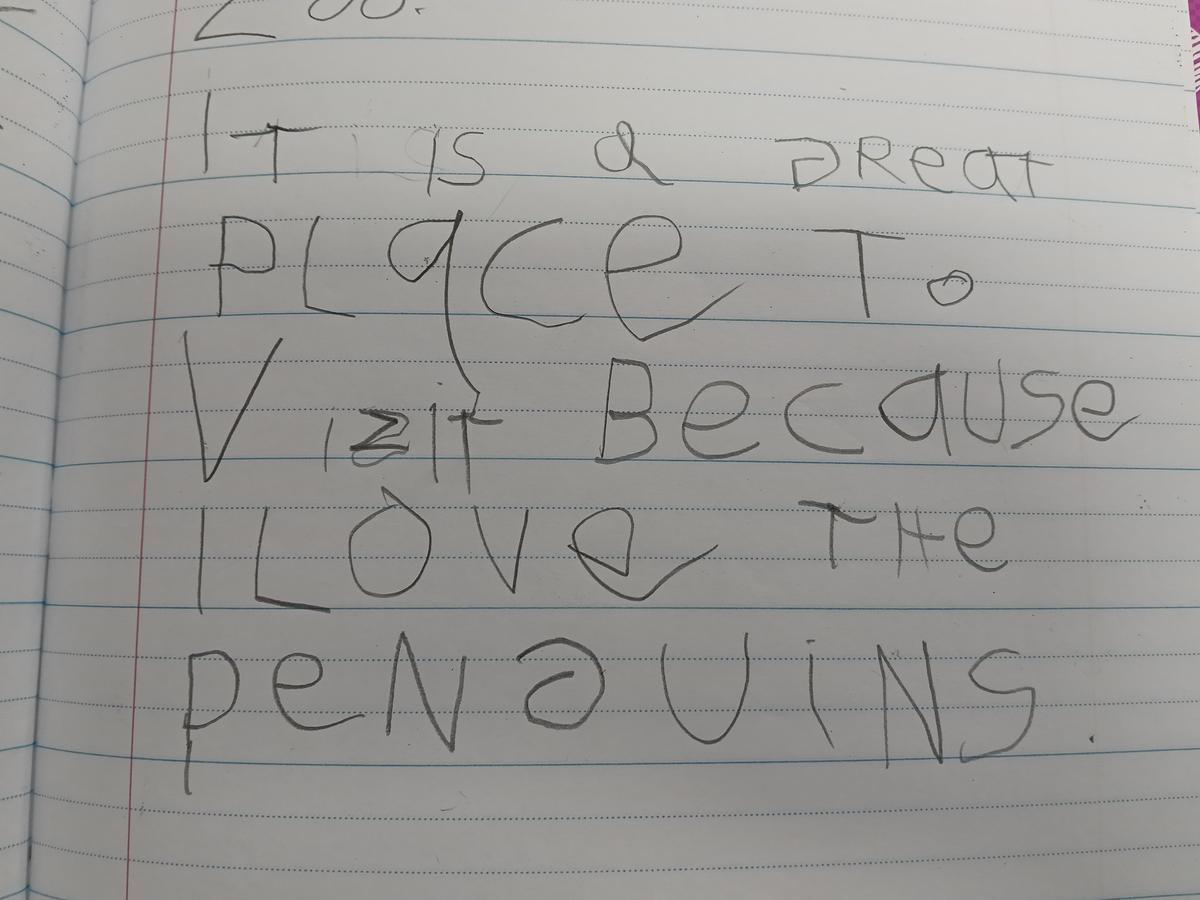 Zoo.
IT is a GReat
PLaCe To
Vizit BeCause
I LOVe THe
PeNGUiNS.